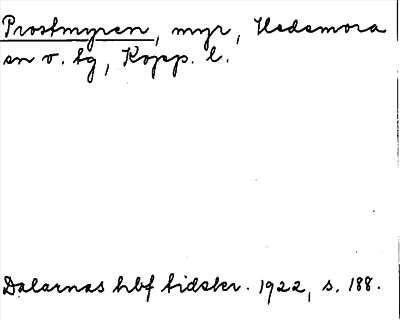 Prostmyren, myr, Hedemora
sn v. tg, Kopp. l.
Dalarnas hbf tidskr. 1922, s. 188.